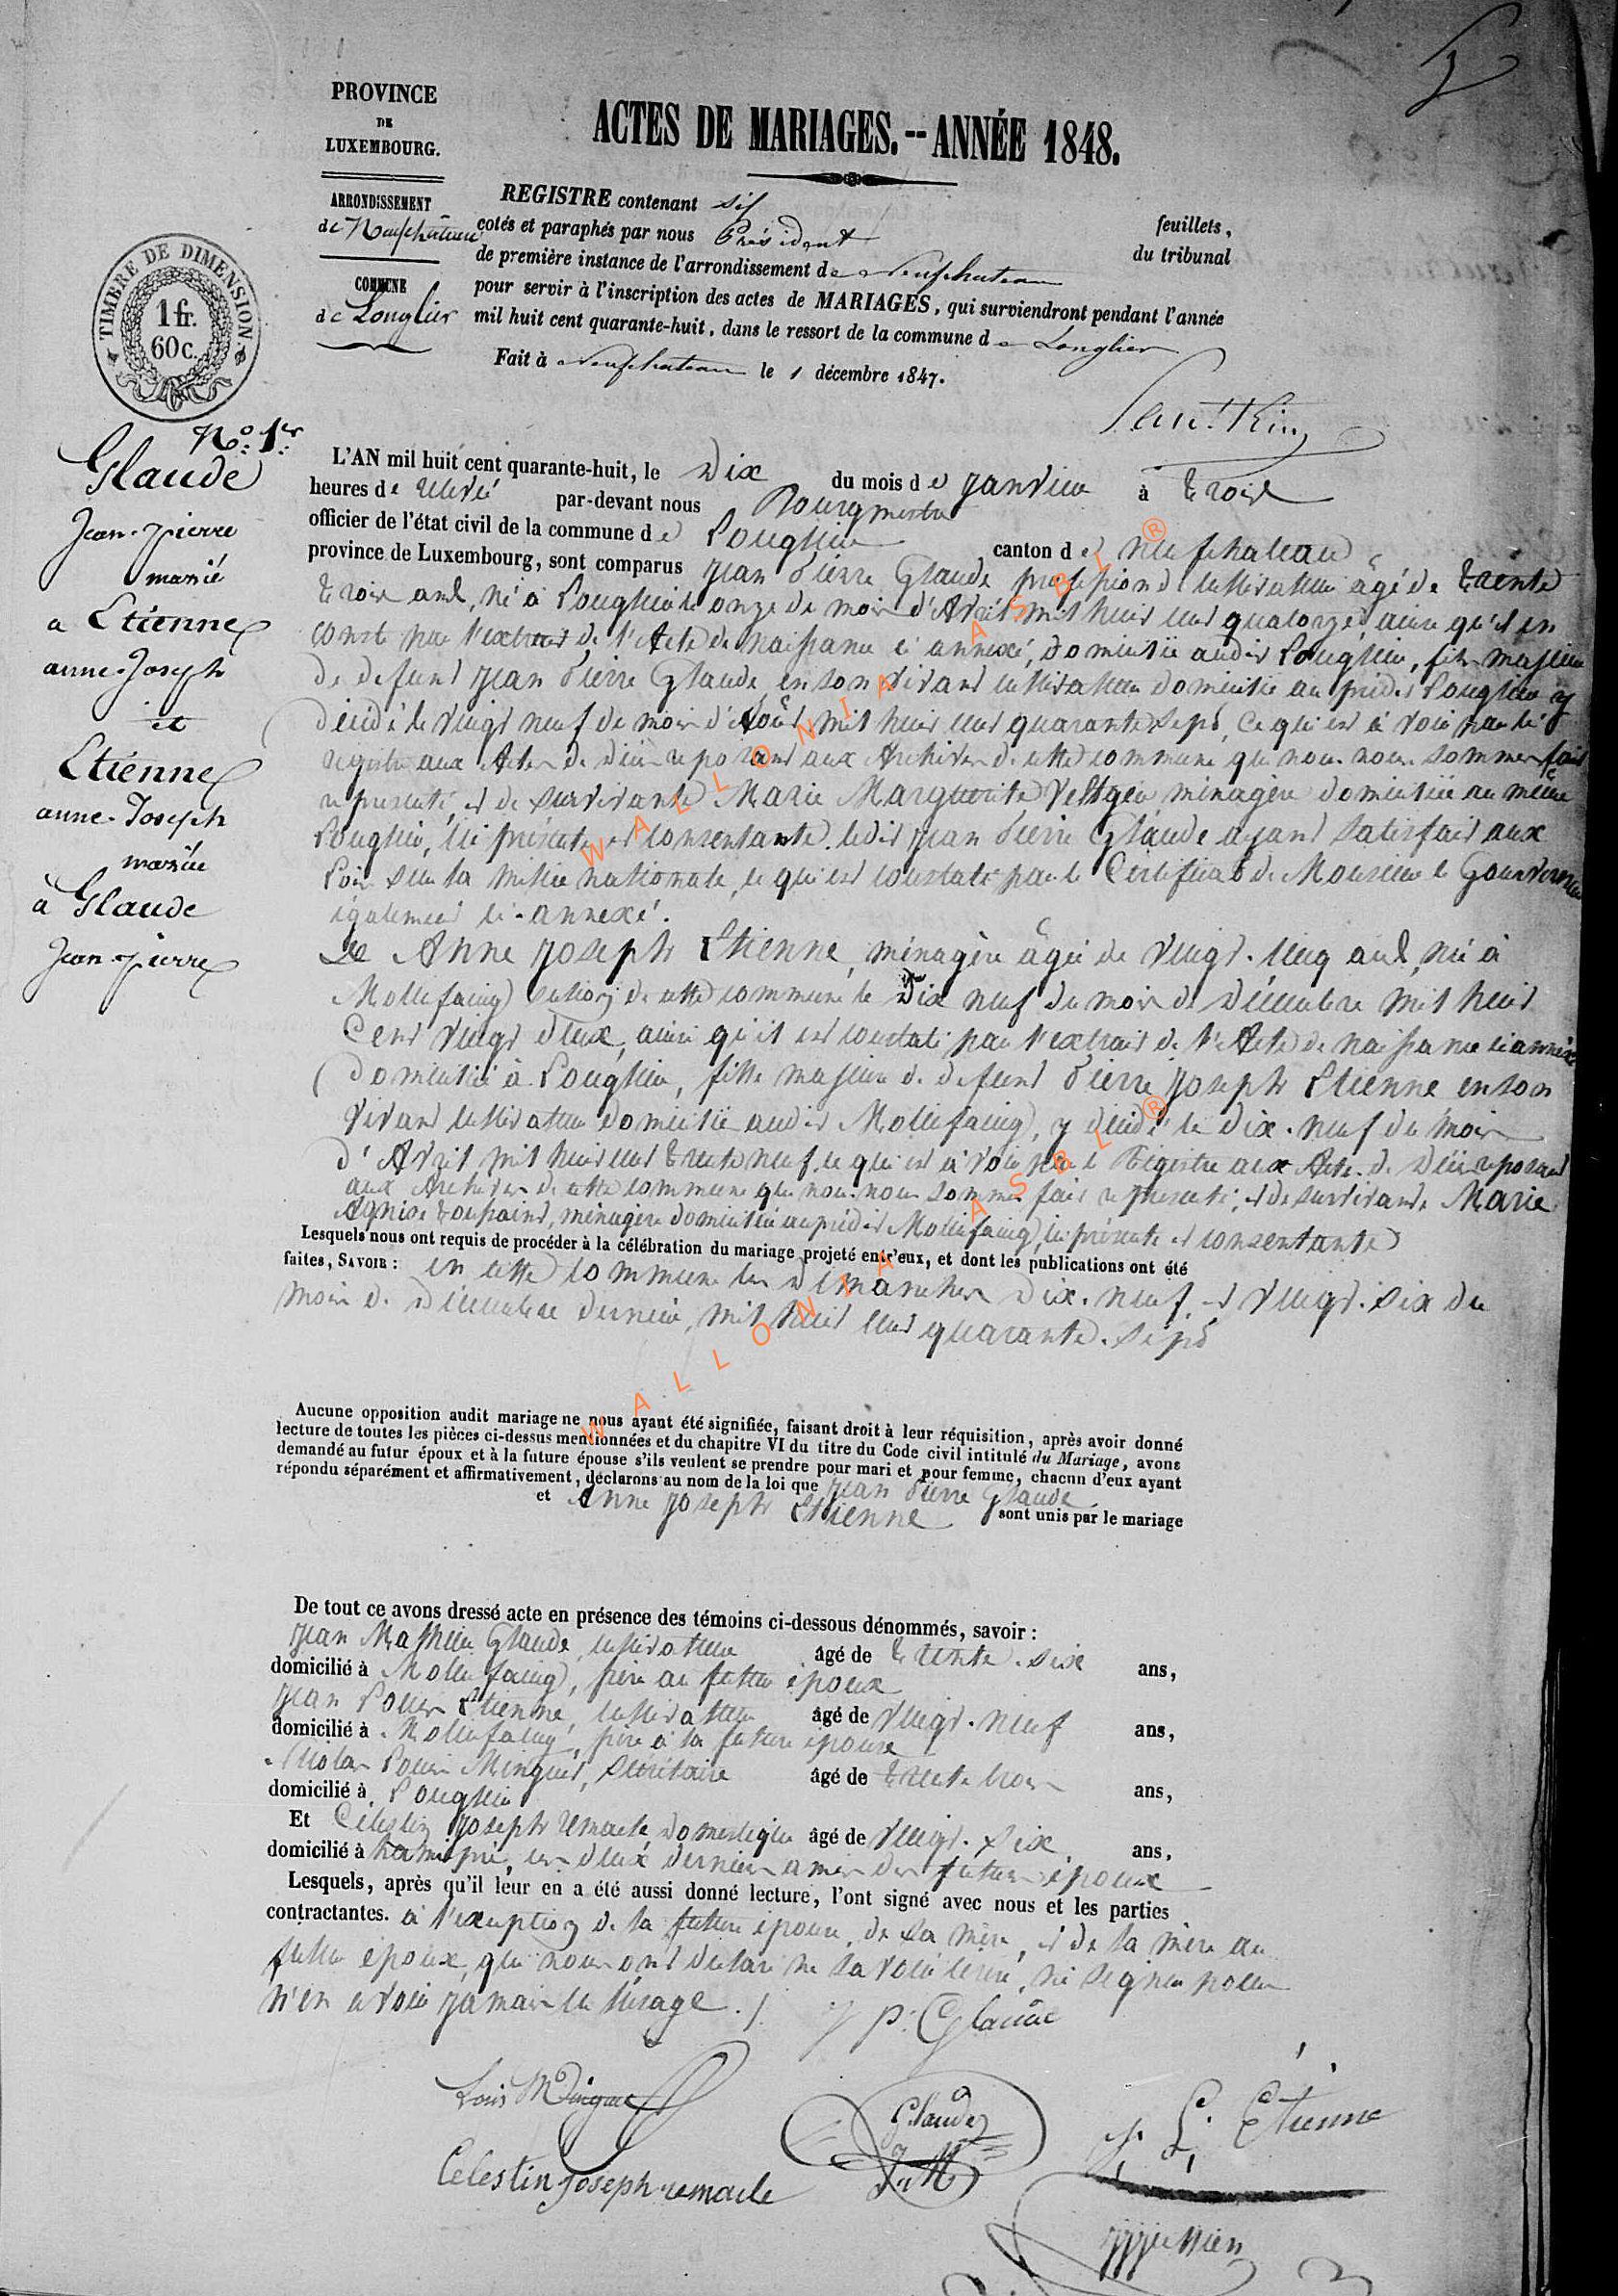 PROVINCE
DE
LUXEMBOURG.
ACTES DE MARIAGES.--ANNÉE 1848.
ARRONDISSEMENT
de Neufchâteau
COMMUNE
de Longlier
REGISTRE contenant six feuillets,
cotés et paraphés par nous Président du tribunal
de première instance de l'arrondissement de Neufchateau
pour servir à l'inscription des actes de MARIAGES, qui surviendront pendant l'année
mil huit cent quarante-huit, dans le ressort de la commune de Longlier
Fait à Neufchateau le 1 décembre 1847.
TIMBRE DE DIMENSION
1 fr.
60 c.
No. 1er
Glaude
Jean-pierre
marié
a Etienne
anne-Joseph
et
Etienne
anne-Joseph
mariée
à Glaude
Jean-pierre
L'AN mil huit cent quarante-huit, le Dix du mois de janvier à trois
heures de relevée par-devant nous Bourgmestre
officier de l'état civil de la commune de Longlier canton de neufchateau
province de Luxembourg, sont comparus Jean Pierre Glaude profession de cultivateur âgé de trente
trois ans, né à Longlier le onze du mois d'Avril mil huit cent quatorze, ainsi qu'il en
conste par l'extrait de l'Acte de naissance ci annexé, domicilié audit Longlier, fils majeur
de defunt Jean Pierre Glaude, en son vivant cultivateur domicilié au prédit Longlier y
décédé le vingt neuf du mois d'Août mil huit cent quarante sept, ce qui est à voir par le
registre aux Actes de Décès reposant aux Archives de cette commune que nous nous sommes fait
representé, et de survivante Marie Marguerite ménagère domiciliée au même
Longlier, ici présente et consentante. ledit Jean Pierre Glaude ayant satisfait aux
Lois sur la milice nationale, ce qui est constaté par le Certificat de Monsieur le Gouverneur
également ci-annexé.
Et Anne Joseph Etienne, ménagère âgée de vingt-cinq ans, né à
Mollifaing section de cette commune le Dix neuf du mois de Décembre mil huit
Cent vingt deux, ainsi qu'il est constaté par l'extrait de l'Acte de naissance ci annexé
Domiciliée à Longlier, fille majeure de defunt Pierre Joseph Etienne en son
vivant cultivateur domicilié audit Mollifaing, y décédé le dix-neuf du mois
d'Avril mil huit cent trente neuf, ce qui est à voir par le Registre aux Actes de Décès reposant
aux Archives de cette commune que nous nous sommes fait representé, et de survivante Marie
Agnise Toussaint, ménagère domiciliée au prédit Mollifaing, ici présente et consentante
Lesquels nous ont requis de procéder à la célébration du mariage projeté entr'eux, et dont les publications ont été
faites, SAVOIR : en cette commune les Dimanches Dix-neuf et vingt-six du
mois de Décembre dernier, mil huit cent quarante-sept
Aucune opposition audit mariage ne nous ayant été signifiée, faisant droit à leur réquisition, après avoir donné
lecture de toutes les pièces ci-dessus mentionnées et du chapitre VI du titre du Code civil intitulé du Mariage, avons
demandé au futur époux et à la future épouse s'ils veulent se prendre pour mari et pour femme, chacun d'eux ayant
répondu séparément et affirmativement, déclarons au nom de la loi que Jean Pierre Glaude
et Anne Joseph Etienne sont unis par le mariage
De tout ce avons dressé acte en présence des témoins ci-dessous dénommés, savoir :
Jean Mathieu Glaude, cultivateur âgé de trente-six ans,
domicilié à Mollifaing, frère au futur époux
Jean Louis Etienne, cultivateur âgé de vingt-neuf ans,
domicilié à Mollifaing, frère à la future épouse
Nicolas Louis Minguet, secrétaire âgé de trente trois ans,
domicilié à Longlier
Et Célestin Joseph remacle, domestique âgé de vingt-six ans,
domicilié à hamipré, ces deux derniers amis des futurs époux
Lesquels, après qu'il leur en a été aussi donné lecture, l'ont signé avec nous et les parties
contractantes. à l'exception de la future épouse, de sa mère, et de la mère au
futur époux, qui nous ont déclaré ne savoir écrire, ni signer pour
n'en avoir jamais eu l'usage.
J P. Glaude
Louis Minguet
Glaude
J. M
J. L. Etienne
Celestin Joseph remacle
WALLONIA ASBL ®
WALLONIA ASBL ®